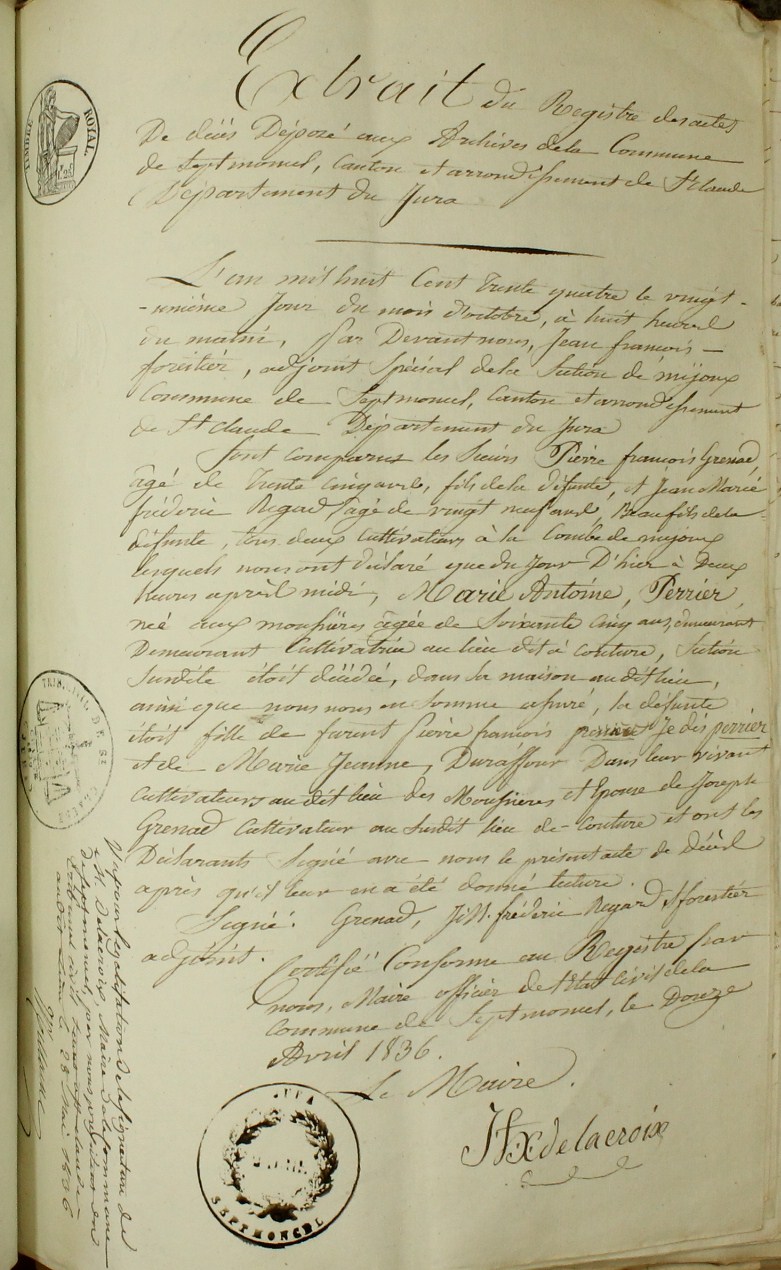 TIMBRE ROYAL
Extrait du Registre des actes
De déces Déposé aux Archives de la Commune
de Septmoncel, Canton et arrondissement de St Claude
Département du Jura
L'an mil huit Cent trente quatre le vingt-
-unième Jour du mois d'octobre, à huit heures
du matin, par Devant nous, Jean françois
forestier, adjoint spécial de la Section de mijoux
Commune de Septmoncel, Canton et arrondissement
de St Claude Département du Jura
Sont comparus les Sieurs Pierre françois Grenard
âgé de trente cinq ans, fils de la défunte, et Jean Marie
fréderic Regad, âgé de vingt neuf ans, Beau fils de la
défunte, tous deux Cultivateurs à la Combe de mijoux
lesquels nous ont déclaré que du Jour D'hier à Deux
heures après midi, Marie Antoine, Perrier
née aux moussières âgée de Soixante cinq ans,
Demeurant Cultivatrice au lieu dit à couture, Section
Susdite étoit décédée, dans sa maison au dit lieu,
ainsi que nous nous en somme assuré, la défunte
étoit fille de furent pierre françois Je dis perrier
et de Marie Jeanne, Duraffour Dans leur vivant
Cultivateurs au dit lieu des Moussières et Epouse de Joseph
Grenard Cultivateur au Susdit lieu de Couture et ont les
Déclarants Signé avec nous le présent acte de Décès
après qu'il leur en a été donné lecture.
Signé: Grenard, J. M. fréderic Regad & forestier
adjoint.
Certifié Conforme au Registre par
nous, Maire officier de l'Etat Civil de la
Commune de Septmoncel, le Douze
Avril 1836.
Le Maire.
J Fx delacroix
JURA
MAIRIE
SEPTMONCEL
TRIBUNAL DE St CLAUDE
Vu pour légalisation de la signature de
M. Delacroix, Maire de la Commune
de Septmoncel, par nous président du
tribunal civil séant à St Claude
au dit lieu le 28 Mai 1836